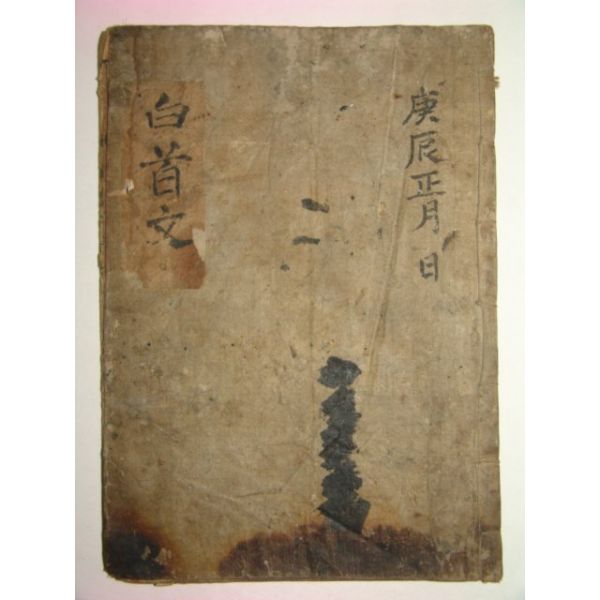 庚辰正月 日
白首文